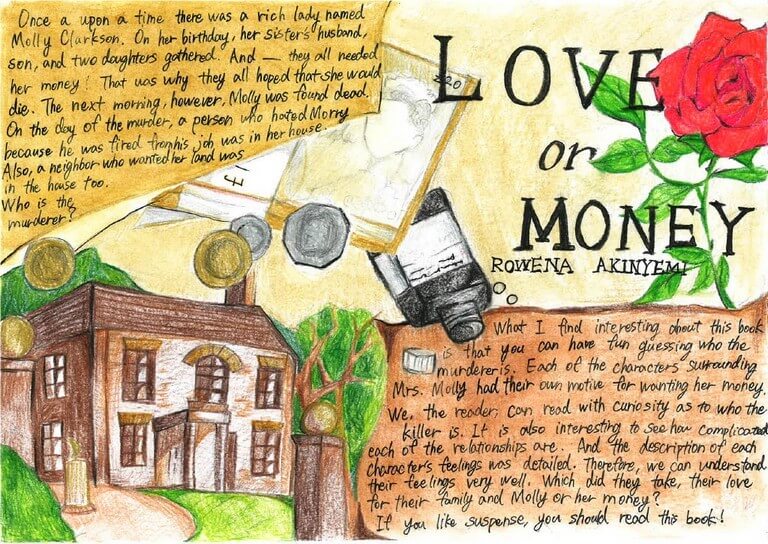 Once a upon a time there was a rich lady named
Molly Clarkson. On her birthday, her sister's husband,
son, and two daughters gathered. And — they all needed
her money! That was why they all hoped that she would
die. The next morning, however, Molly was found dead.
On the day of the murder, a person who hated Morry
because he was fired from his job was in her house.
Also, a neighbor who wanted her land was
in the house too.
Who is the
murderer?
£20
£1
LOVE
or
MONEY
ROWENA AKINYEMI
What I find interesting about this book
is that you can have fun guessing who the
murderer is. Each of the characters surrounding
Mrs. Molly had their own motive for wanting her money.
We, the reader, can read with curiosity as to who the
killer is. It is also interesting to see how complicated
each of the relationships are. And the description of each
character's feelings was detailed. Therefore, we can understand
their feelings very well. Which did they take, their love
for their family and Molly or her money?
If you like suspense, you should read this book!